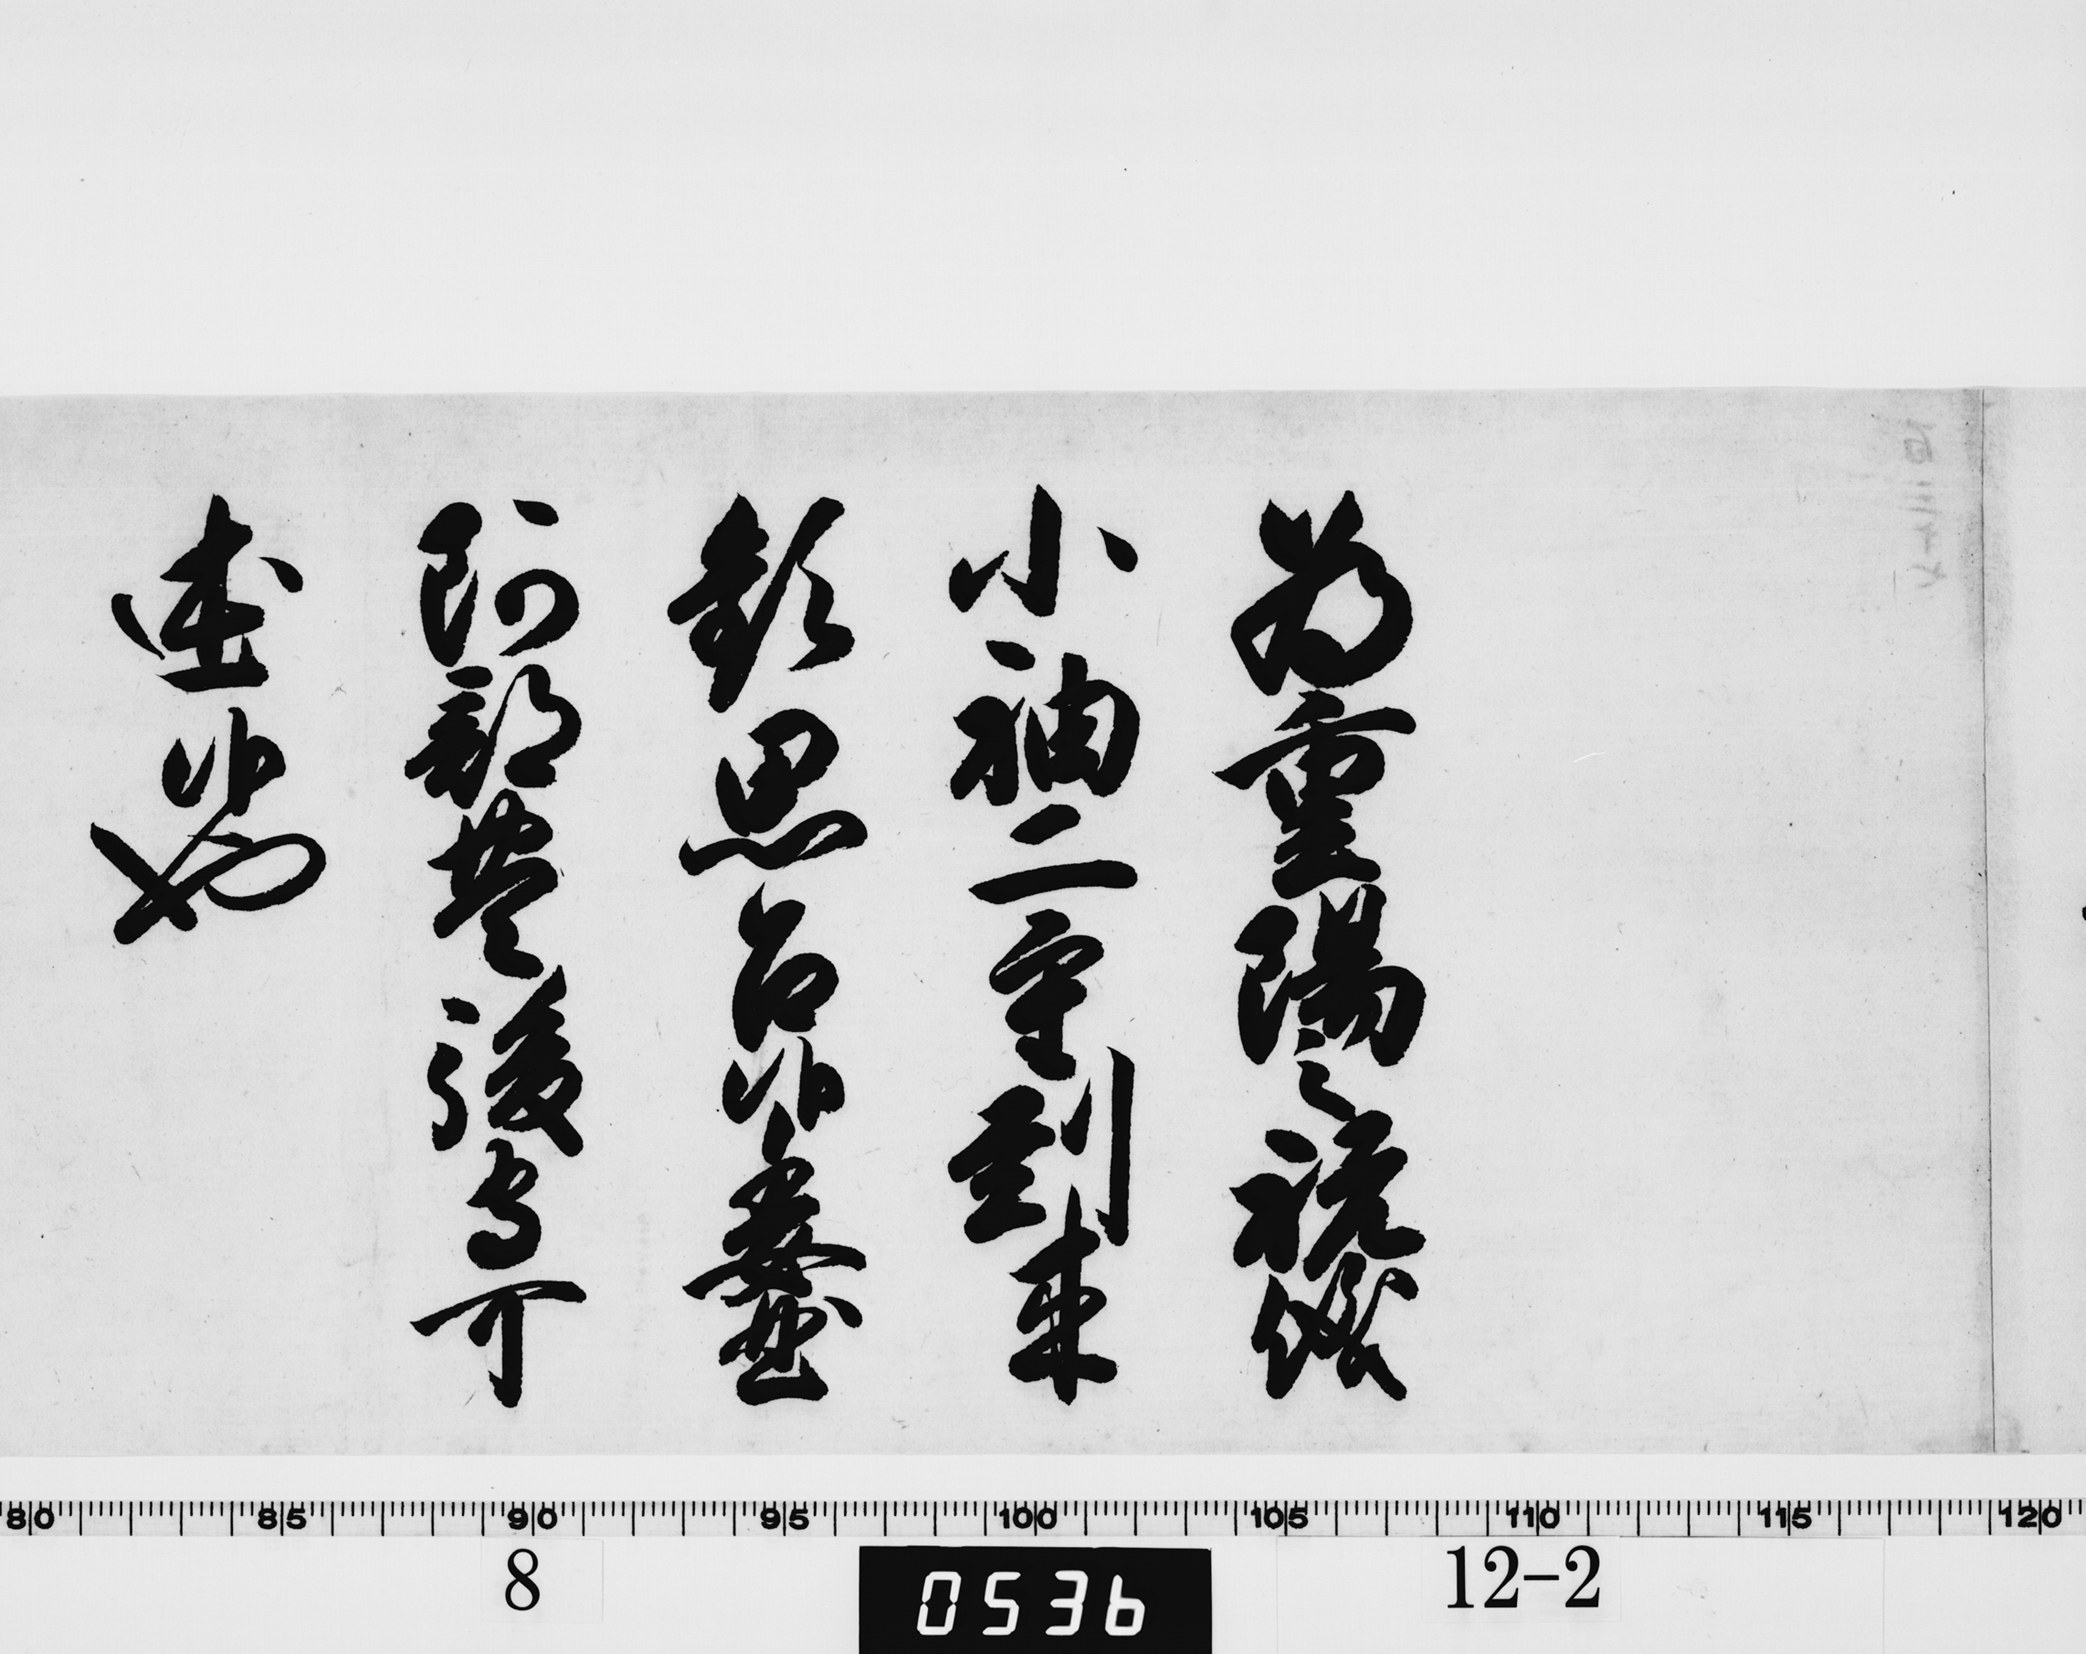 為重陽之祝儀
小袖二重到来
歓思召候委曲
阿部豊後守可
述候也
80 85 90 95 100 105 110 115 120
8 0536 12-2